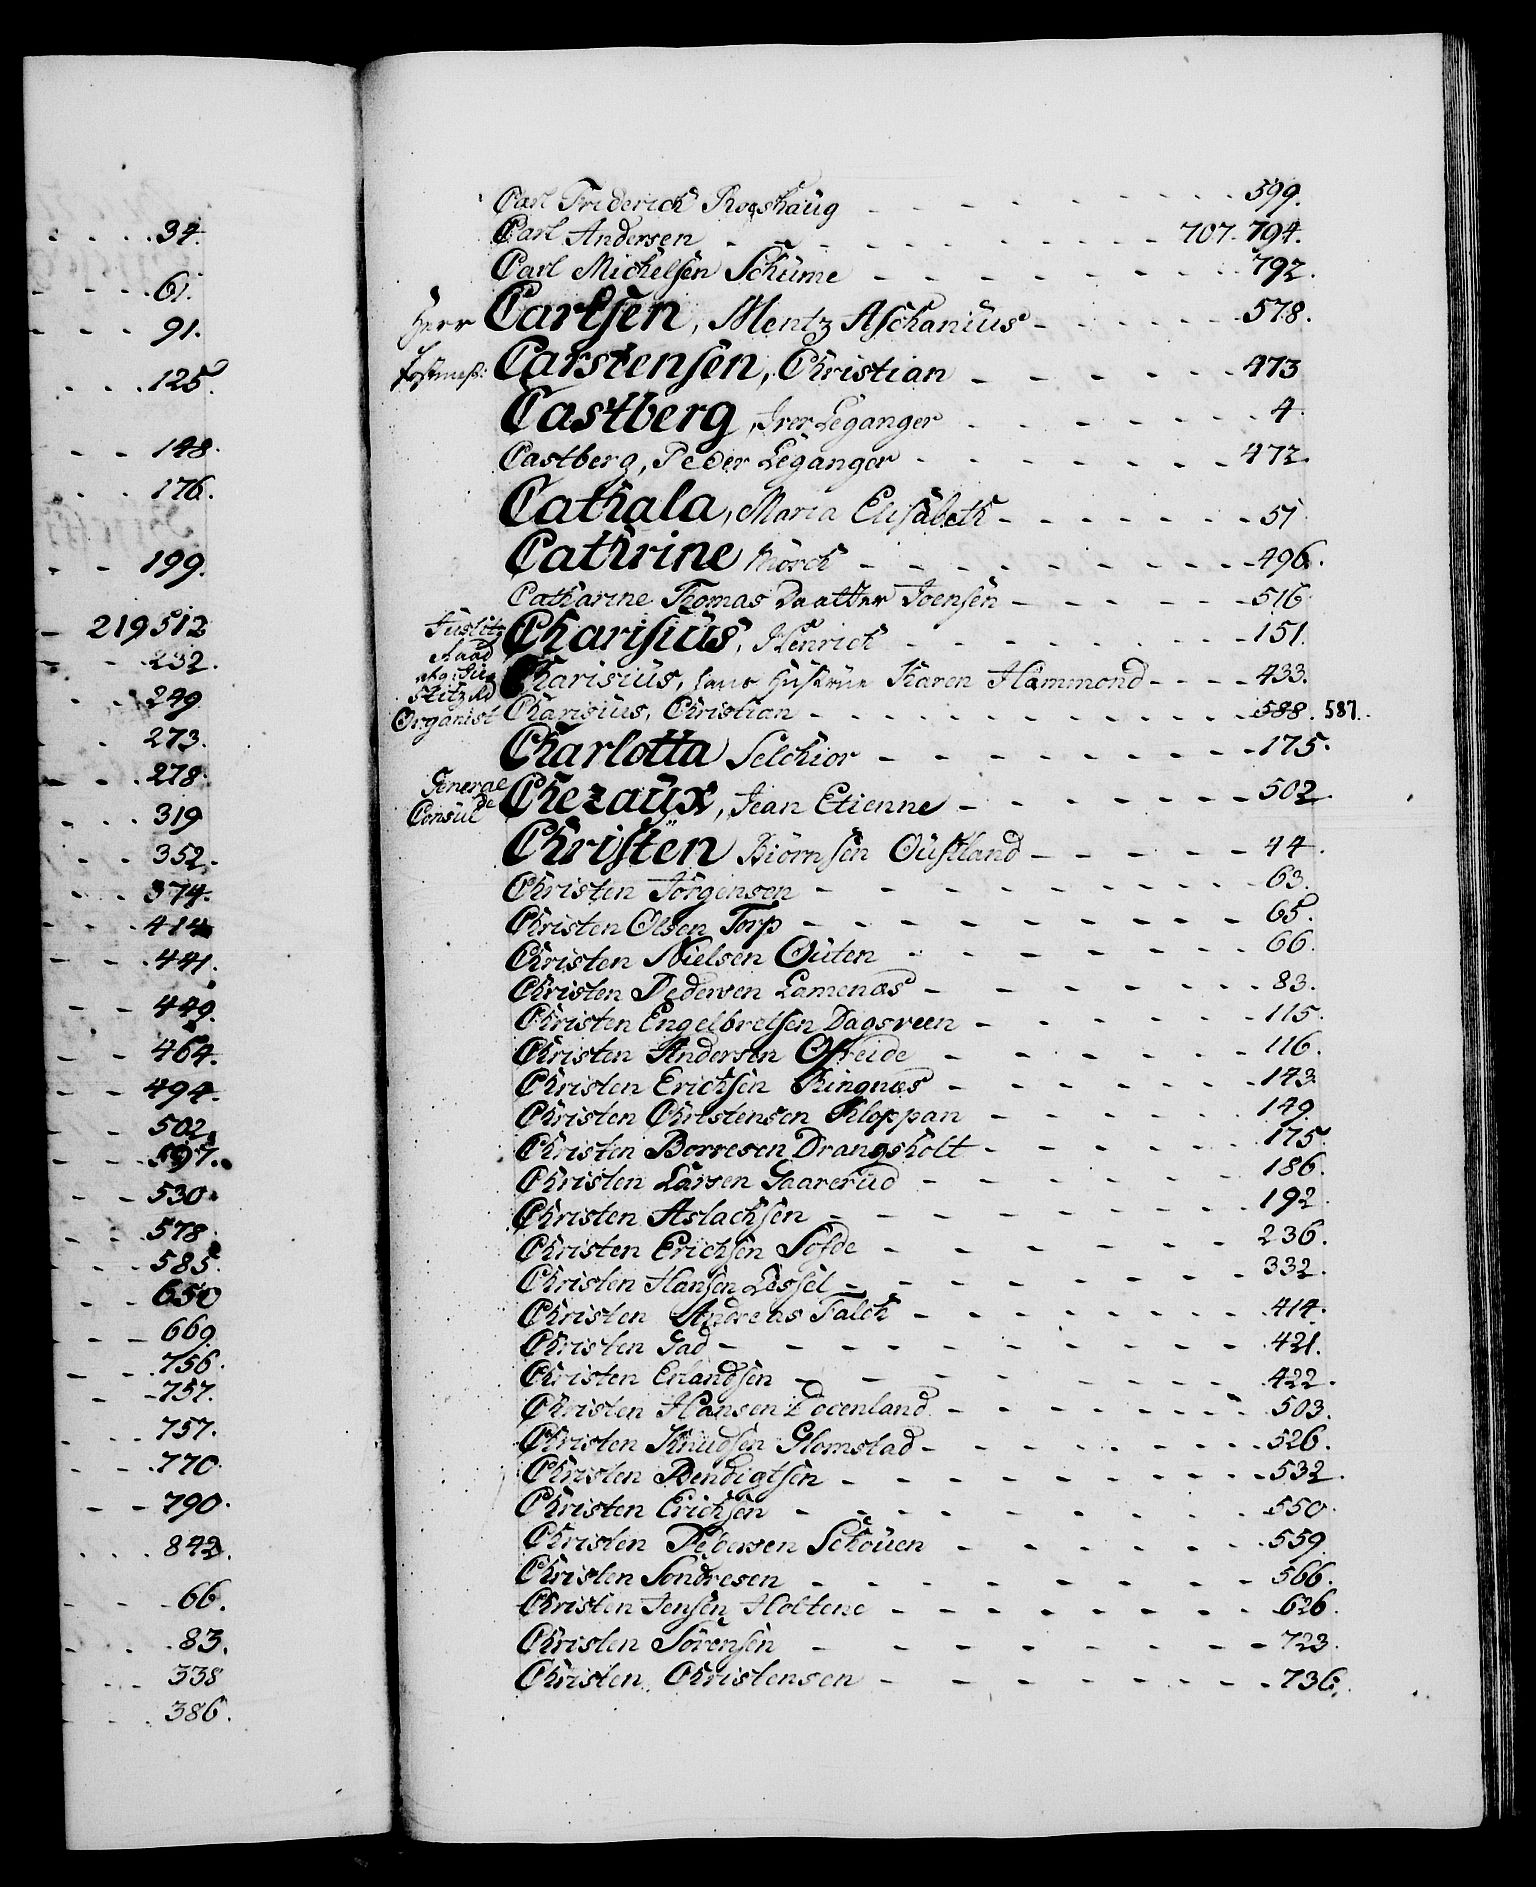 34.
61.
91.
125.
148.
176.
199.
219 512
232.
249
273.
278.
319
352.
374.
414
441.
449.
464.
494.
502.
597.
530.
578.
585.
650
669.
756.
757.
757.
770.
790.
842.
66.
83.
338
386.
Carl Friderich Roeshaug - 599.
Carl Andersen - 707. 794.
Carl Michelsen Schüme - 792.
Herr Carlsen, Mentz Aschanius - 578.
Postmest: Carstensen, Christian - 473
Castberg, Iver Leganger - 4.
Castberg, Peder Leganger - 472.
Cathala, Maria Elisabeth - 51
Cathrine Mörch - 496.
Catharine Thomas Daatter Joensen - 516
Justitz Raad Charisius, Henrich - 151.
Justitz Rd Charisius, hans Hüstrue Karen Hammond - 433.
Organist Charisius, Christian - 588. 587.
Charlotta Selchior - 175.
General Consul Chezaux, Jean Etienne - 502.
Christen Biörnsen Oustland - 44.
Christen Jörgensen - 63.
Christen Olsen Torp - 65.
Christen Nielsen Outen - 66.
Christen Pedersen Lamenæs - 83.
Christen Engelbretsen Dagsveen - 115.
Christen Andersen Ofreide - 116.
Christen Erichsen Ringnæs - 143.
Christen Christensen Kloppan - 149.
Christen Borresen Drangsholt - 175.
Christen Larsen Gaarerud - 186.
Christen Aslachsen - 192.
Christen Erichsen Sofde - 236.
Christen Hansen Lessel - 332.
Christen Andreas Falch - 414.
Christen Gad - 421.
Christen Erlandsen - 422.
Christen Hansen Edvenland - 503.
Christen Knudsen Glomstad - 526.
Christen Bendigtsen - 532.
Christen Erichsen - 550.
Christen Pedersen Schouen - 559.
Christen Söndresen - 566.
Christen Jensen Holtene - 626.
Christen Sörensen - 723.
Christen Christensen - 736.